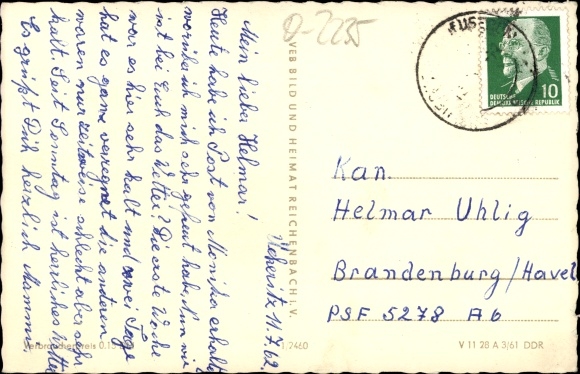 D-2235
Ückeritz 11.7.62
Mein lieber Helmar!
Heute habe ich Post von Monika erhalten
worüber ich mich sehr gefreut habe. Nun wie
ist bei Euch das Wetter? Die erste Woche
war es hier sehr kalt und zwei Tage
hat es ganz verregnet die anderen
waren nur zeitweise schlecht aber sehr
kalt. Seit Sonntag ist herrliches Wetter
Es grüßt Dich herzlich Mamma.
VEB BILD UND HEIMAT REICHENBACH i. V.
DEUTSCHE
DEMOKRATISCHE REPUBLIK
10
Kan.
Helmar Uhlig
Brandenburg/Havel
PSF 5278 A6
Verbraucherpreis 0,15
1.7460
V 11 28 A 3/61 DDR